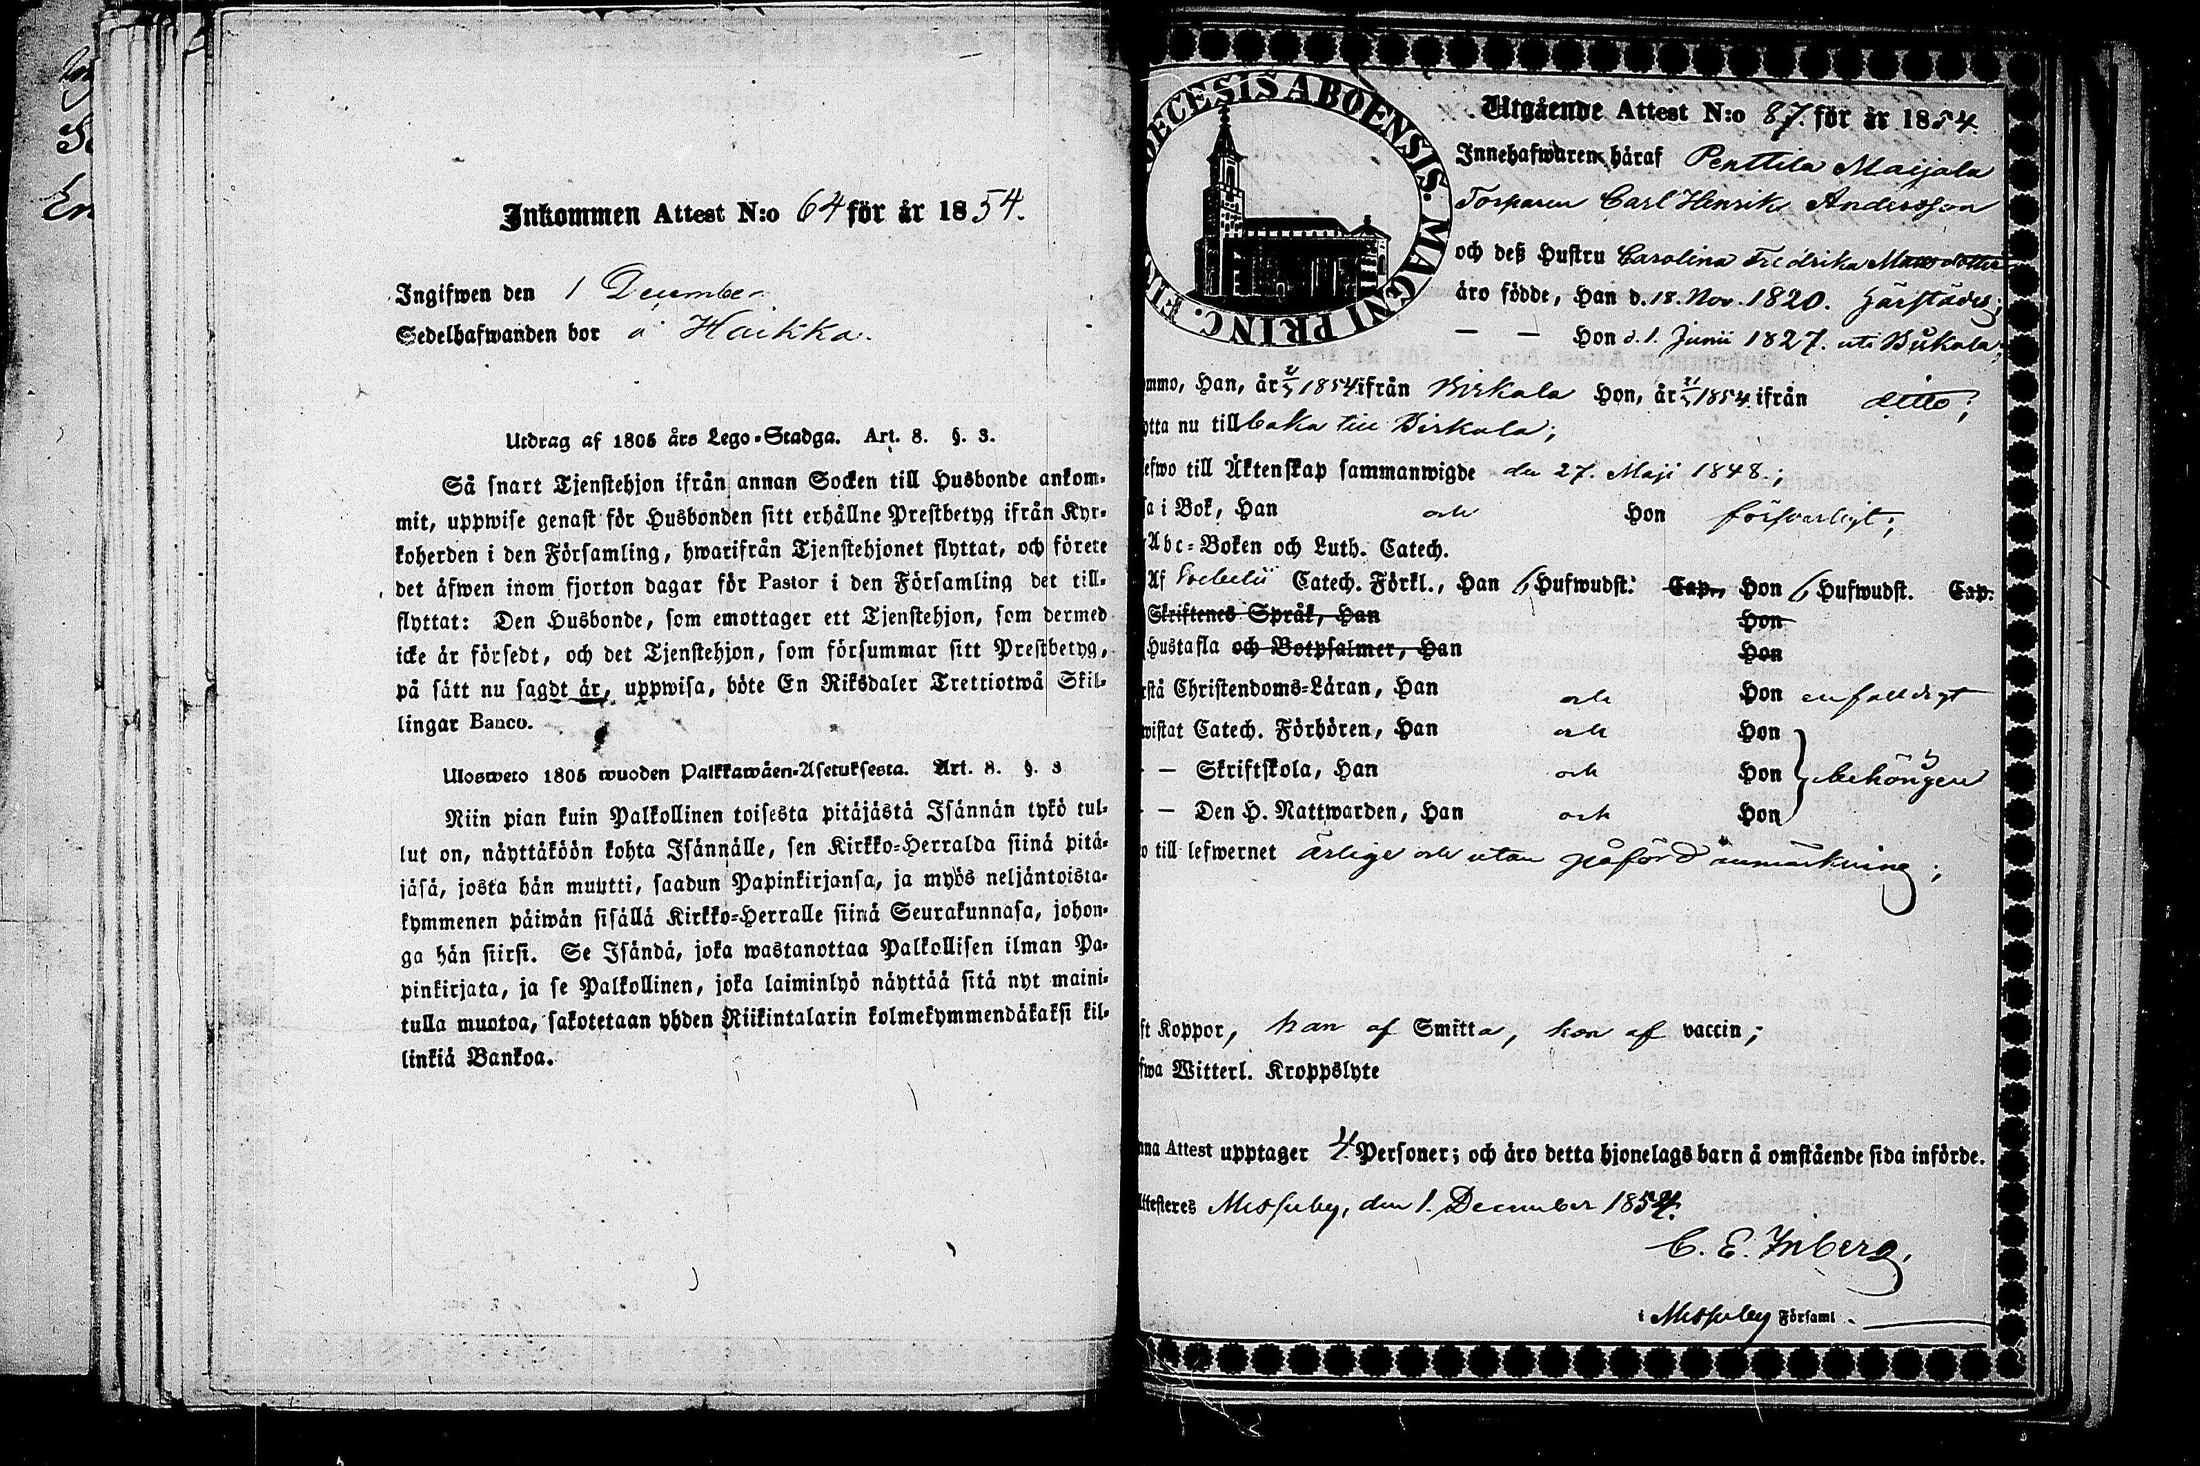 Inkommen Attest N:o 64 för år 1854.
Ingifwen den 1 December
Sedelhafwanden bor å Haikka.
Utdrag af 1805 års Lego-Stadga. Art. 8. §. 3.
Så snart Tjenstehjon ifrån annan Socken till Husbonde ankom-
mit, uppwise genast för Husbonden sitt erhållne Prestbetyg ifrån Kyr-
koherden i den Församling, hwarifrån Tjenstehjonet flyttat, och förete
det äfwen inom fjorton dagar för Pastor i den Församling det till-
flyttat: Den Husbonde, som emottager ett Tjenstehjon, som dermed
icke är försedt, och det Tjenstehjon, som försummar sitt Prestbetyg,
på sätt nu sagdt är, uppwisa, böte En Riksdaler Trettiotwå Skil-
lingar Banco.
Ulosweto 1805 wuoden Palkkawäen-Asetuksesta. Art. 8. §. 3
Niin pian kuin Palkollinen toisesta pitäjästä Isännän tykö tul-
lut on, näyttäköön kohta Isännälle, sen Kirkko-Herralda siinä pitä-
jäsä, josta hän muutti, saadun Papinkirjansa, ja myös neljäntoista-
kymmenen päiwän sisällä Kirkko-Herralle siinä Seurakunnasa, johon-
ga hän siirsi. Se Isändä, joka wastanottaa Palkollisen ilman Pa-
pinkirjata, ja se Palkollinen, joka laiminlyö näyttää sitä nyt maini-
tulla muotoa, sakotetaan yhden Riikintalarin kolmekymmendäkaksi kil-
linkiä Bankoa.
DECESIS ABOENSIS. MAGNI PRINC. FIN
Utgående Attest N:o 87. för år 1854.
Innehafwaren häraf Penttilä Maijala
Torparen Carl Henrik Andersson
och deß Hustru Carolina Fredrika Matsdotter
äro födde, Han d. 18. Nov. 1820. härstädes;
— — Hon d. 1. Junii 1827. uti Birkala;
ommo, Han, år 1854 ifrån Birkala Hon, år 1854 ifrån ditto;
ytta nu tillbaka till Birkala;
lefwo till Äktenskap sammanwigde den 27. Maji 1848.;
sa i Bok, Han och Hon försvarligt;
Abc-Boken och Luth. Catech.
Af Svebelii Catech. Förkl., Han 6 Hufwudst. Cap., Hon 6 Hufwudst. Cap.
Skriftenes Språk, Han Hon
Hustafla och Botpsalmer, Han Hon
rstå Christendoms-Läran, Han och Hon enfaldigt
wistat Catech. Förhören, Han och Hon
— — Skriftskola, Han och Hon behörigen
— — Den H. Nattwarden, Han och Hon
o till lefwernet ärlige och utan påförd anmärkning;
ft Koppor, han af Smitta, hon af vaccin;
fwa Witterl. Kroppslyte
nna Attest upptager 4. Personer; och äro detta hjonelags barn å omstående sida införde.
Attesteres Messuby, den 1. December 1854.
C. E. Inberg,
i Messuby Församl.